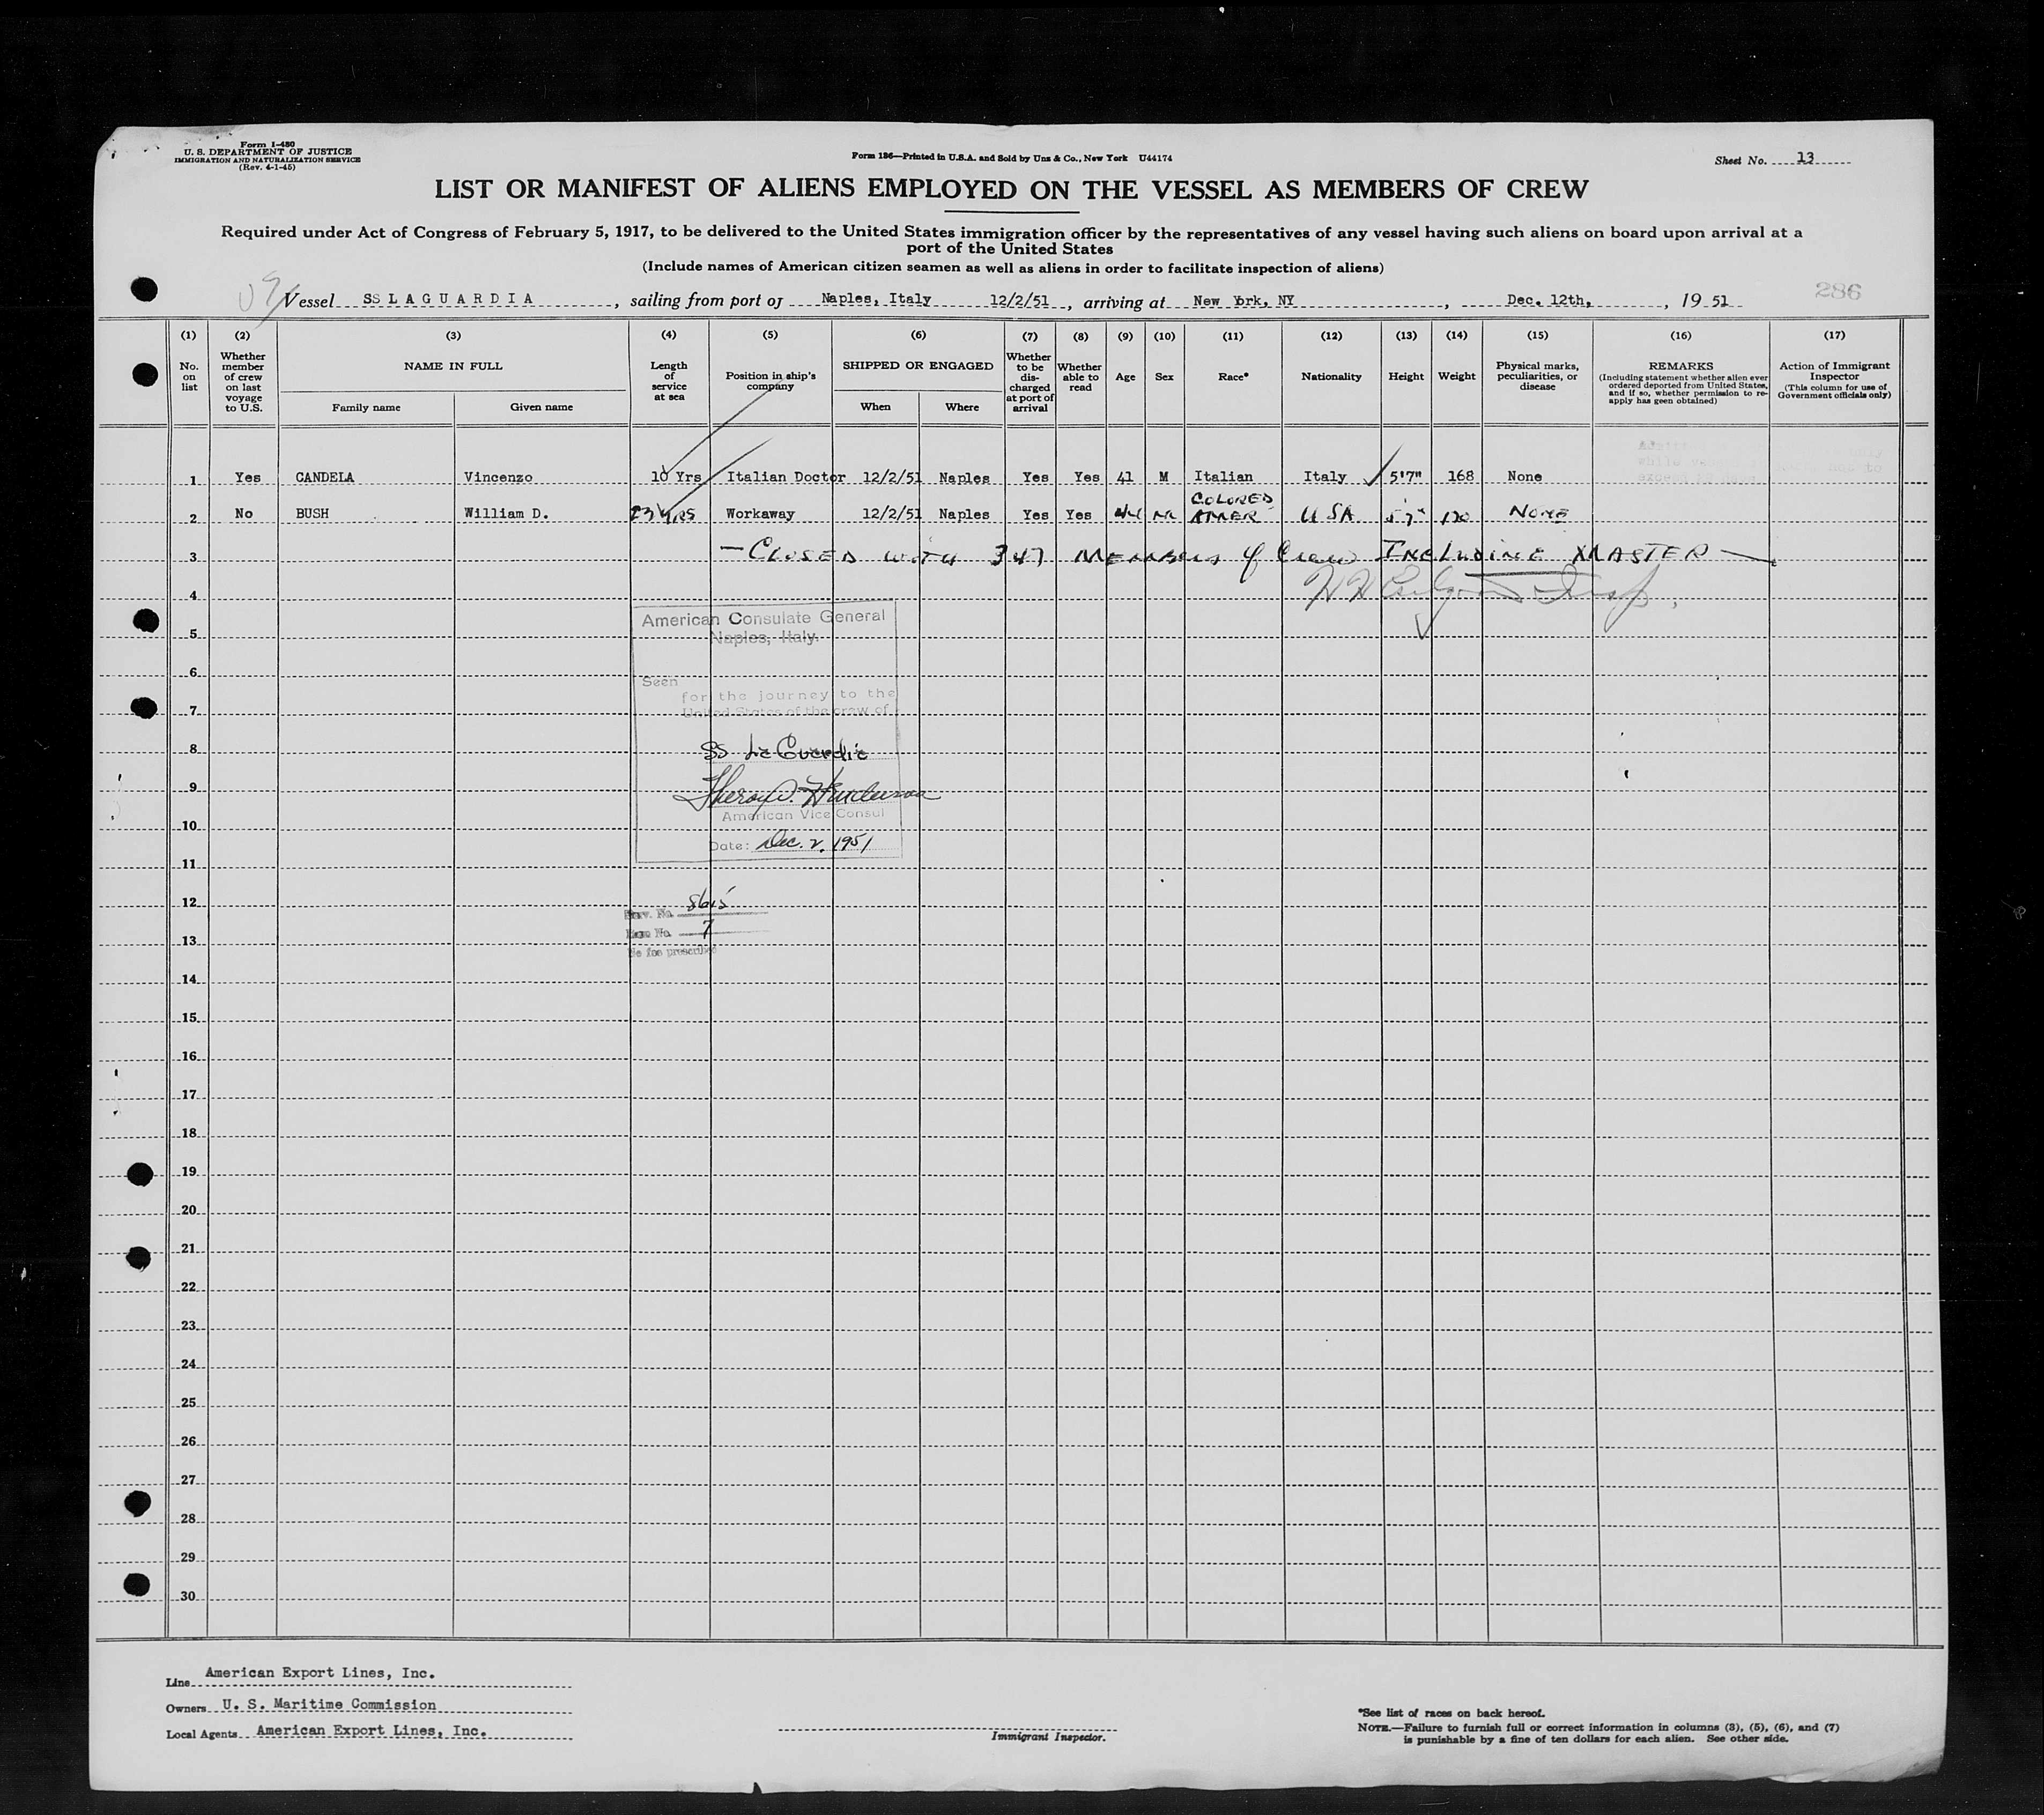 Form I-480
U. S. DEPARTMENT OF JUSTICE
IMMIGRATION AND NATURALIZATION SERVICE
(Rev. 4-1-45)
Form 186—Printed in U.S.A. and Sold by Unz & Co., New York U44174
Sheet No. 13
LIST OR MANIFEST OF ALIENS EMPLOYED ON THE VESSEL AS MEMBERS OF CREW
Required under Act of Congress of February 5, 1917, to be delivered to the United States immigration officer by the representatives of any vessel having such aliens on board upon arrival at a
port of the United States
(Include names of American citizen seamen as well as aliens in order to facilitate inspection of aliens)
Vessel SS L A G U A R D I A , sailing from port of Naples, Italy 12/2/51 , arriving at New York, NY , Dec. 12th, , 19 51
286
(1) (2) (3) (4) (5) (6) (7) (8) (9) (10) (11) (12) (13) (14) (15) (16) (17)
No. on list
Whether member of crew on last voyage to U.S.
NAME IN FULL
Family name
Given name
Length of service at sea
Position in ship's company
SHIPPED OR ENGAGED
When
Where
Whether to be discharged at port of arrival
Whether able to read
Age
Sex
Race*
Nationality
Height
Weight
Physical marks, peculiarities, or disease
REMARKS
(Including statement whether alien ever ordered deported from United States, and if so, whether permission to re-apply has geen obtained)
Action of Immigrant Inspector
(This column for use of Government officials only)
1 Yes CANDELA Vincenzo 10 Yrs Italian Doctor 12/2/51 Naples Yes Yes 41 M Italian Italy 5'7" 168 None
2 No BUSH William D. 23 YRS Workaway 12/2/51 Naples Yes Yes 44 M COLORED AMER USA 5'7" 170 NONE
3 — CLOSED WITH 347 MEMBERS of Crew INCLUDING MASTER —
4
5
6
7
8
9
10
11
12
13
14
15
16
17
18
19
20
21
22
23
24
25
26
27
28
29
30
American Consulate General
Naples, Italy.
Seen
for the journey to the
United States of the crew of
SS La Guardia
American Vice Consul
Date: Dec. 2, 1951
Serv. No. 8615
Item No. 7
No fee prescribed
Line American Export Lines, Inc.
Owners U. S. Maritime Commission
Local Agents American Export Lines, Inc.
Immigrant Inspector.
*See list of races on back hereof.
NOTE.—Failure to furnish full or correct information in columns (3), (5), (6), and (7)
is punishable by a fine of ten dollars for each alien. See other side.